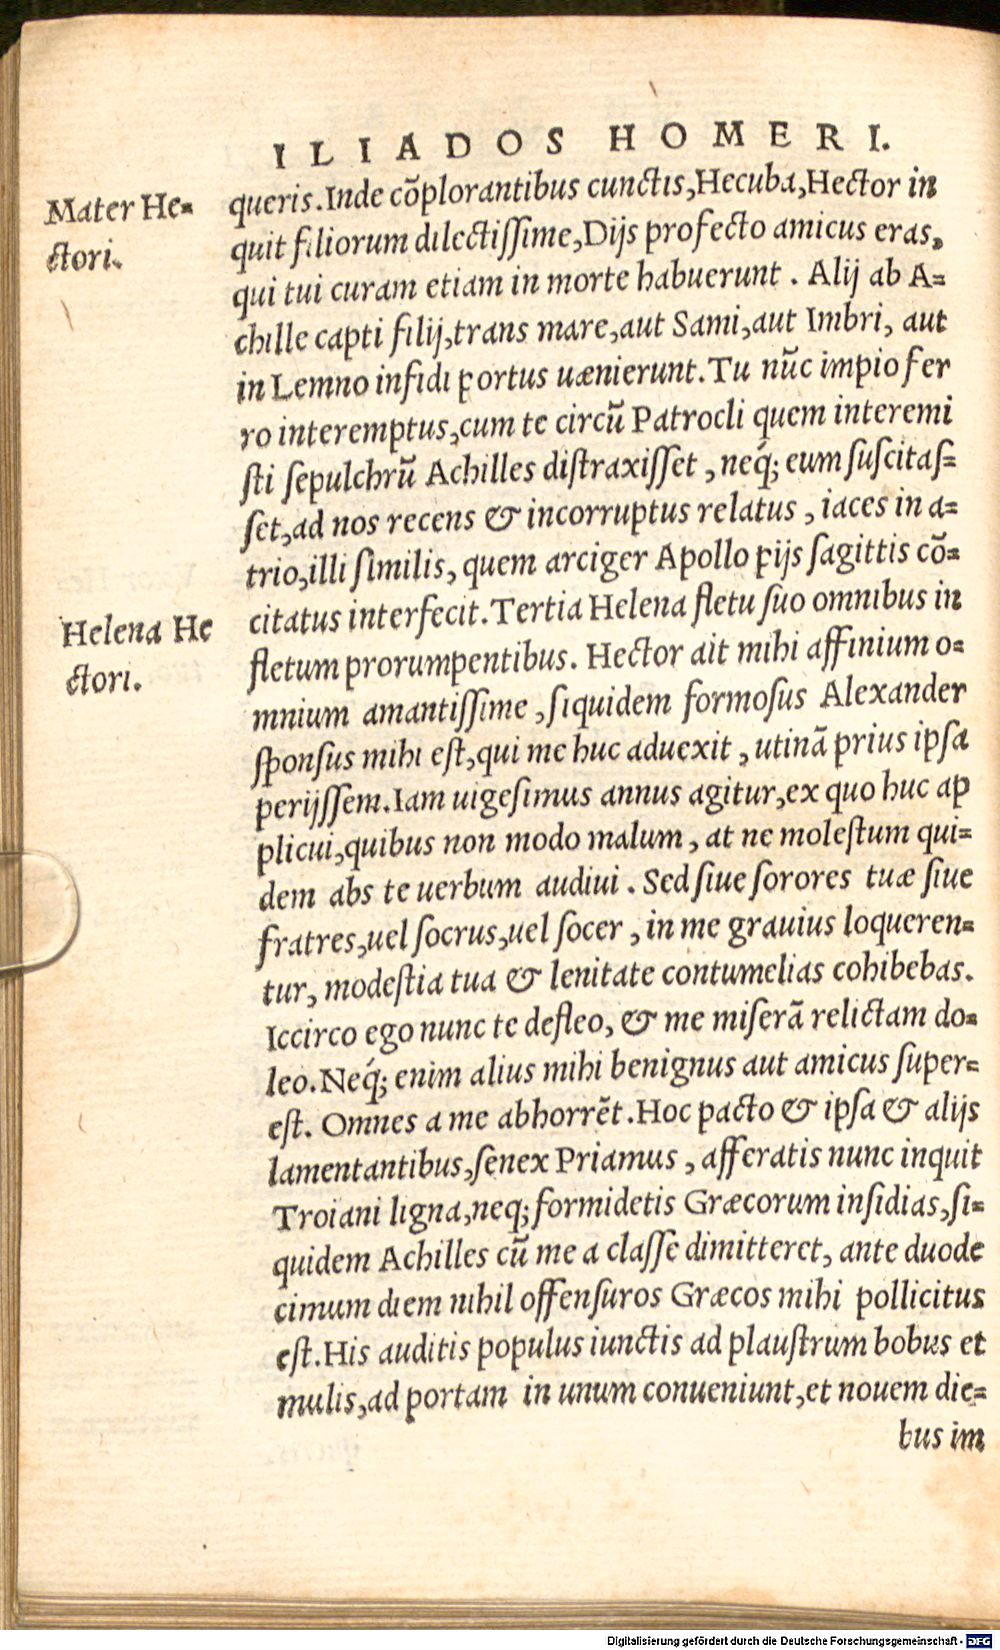 ILIADOS HOMERI.
Mater He-
ctori.
queris.Inde cõplorantibus cunctis,Hecuba,Hector in
quit filiorum dilectiſſime,Dijs profecto amicus eras,
qui tui curam etiam in morte habuerunt . Alij ab A-
chille capti filij,trans mare,aut Sami,aut Imbri, aut
in Lemno infidi portus uænierunt.Tu nũc impio fer
ro interemptus,cum te circũ Patrocli quem interemi
ſti ſepulchrũ Achilles diſtraxiſſet , neq́; eum ſuſcitaſ-
ſet,ad nos recens & incorruptus relatus , iaces in a-
trio,illi ſimilis, quem arciger Apollo pijs ſagittis cõ-
citatus interfecit.Tertia Helena fletu ſuo omnibus in
Helena He
ctori.
fletum prorumpentibus. Hector ait mihi affinium o-
mnium amantiſſime ,ſiquidem formoſus Alexander
ſponſus mihi eſt,qui me huc aduexit , utinã prius ipſa
perijſſem.Iam uigeſimus annus agitur,ex quo huc ap
plicui,quibus non modo malum , at ne moleſtum qui-
dem abs te uerbum audiui . Sed ſiue ſorores tuæ ſiue
fratres,uel ſocrus,uel ſocer , in me grauius loqueren-
tur, modeſtia tua & lenitate contumelias cohibebas.
Iccirco ego nunc te defleo, & me miſerã relictam do-
leo.Neq́; enim alius mihi benignus aut amicus ſuper-
eſt. Omnes a me abhorrẽt.Hoc pacto & ipſa & alijs
lamentantibus,ſenex Priamus , afferatis nunc inquit
Troiani ligna,neq; formidetis Græcorum inſidias,ſi-
quidem Achilles cũ me a claſſe dimitteret, ante duode
cimum diem nihil offenſuros Græcos mihi pollicitus
eſt.His auditis populus iunctis ad plauſtrum bobus et
mulis,ad portam in unum conueniunt,et nouem die-
bus im
Digitalisierung gefördert durch die Deutsche Forschungsgemeinschaft - DFG